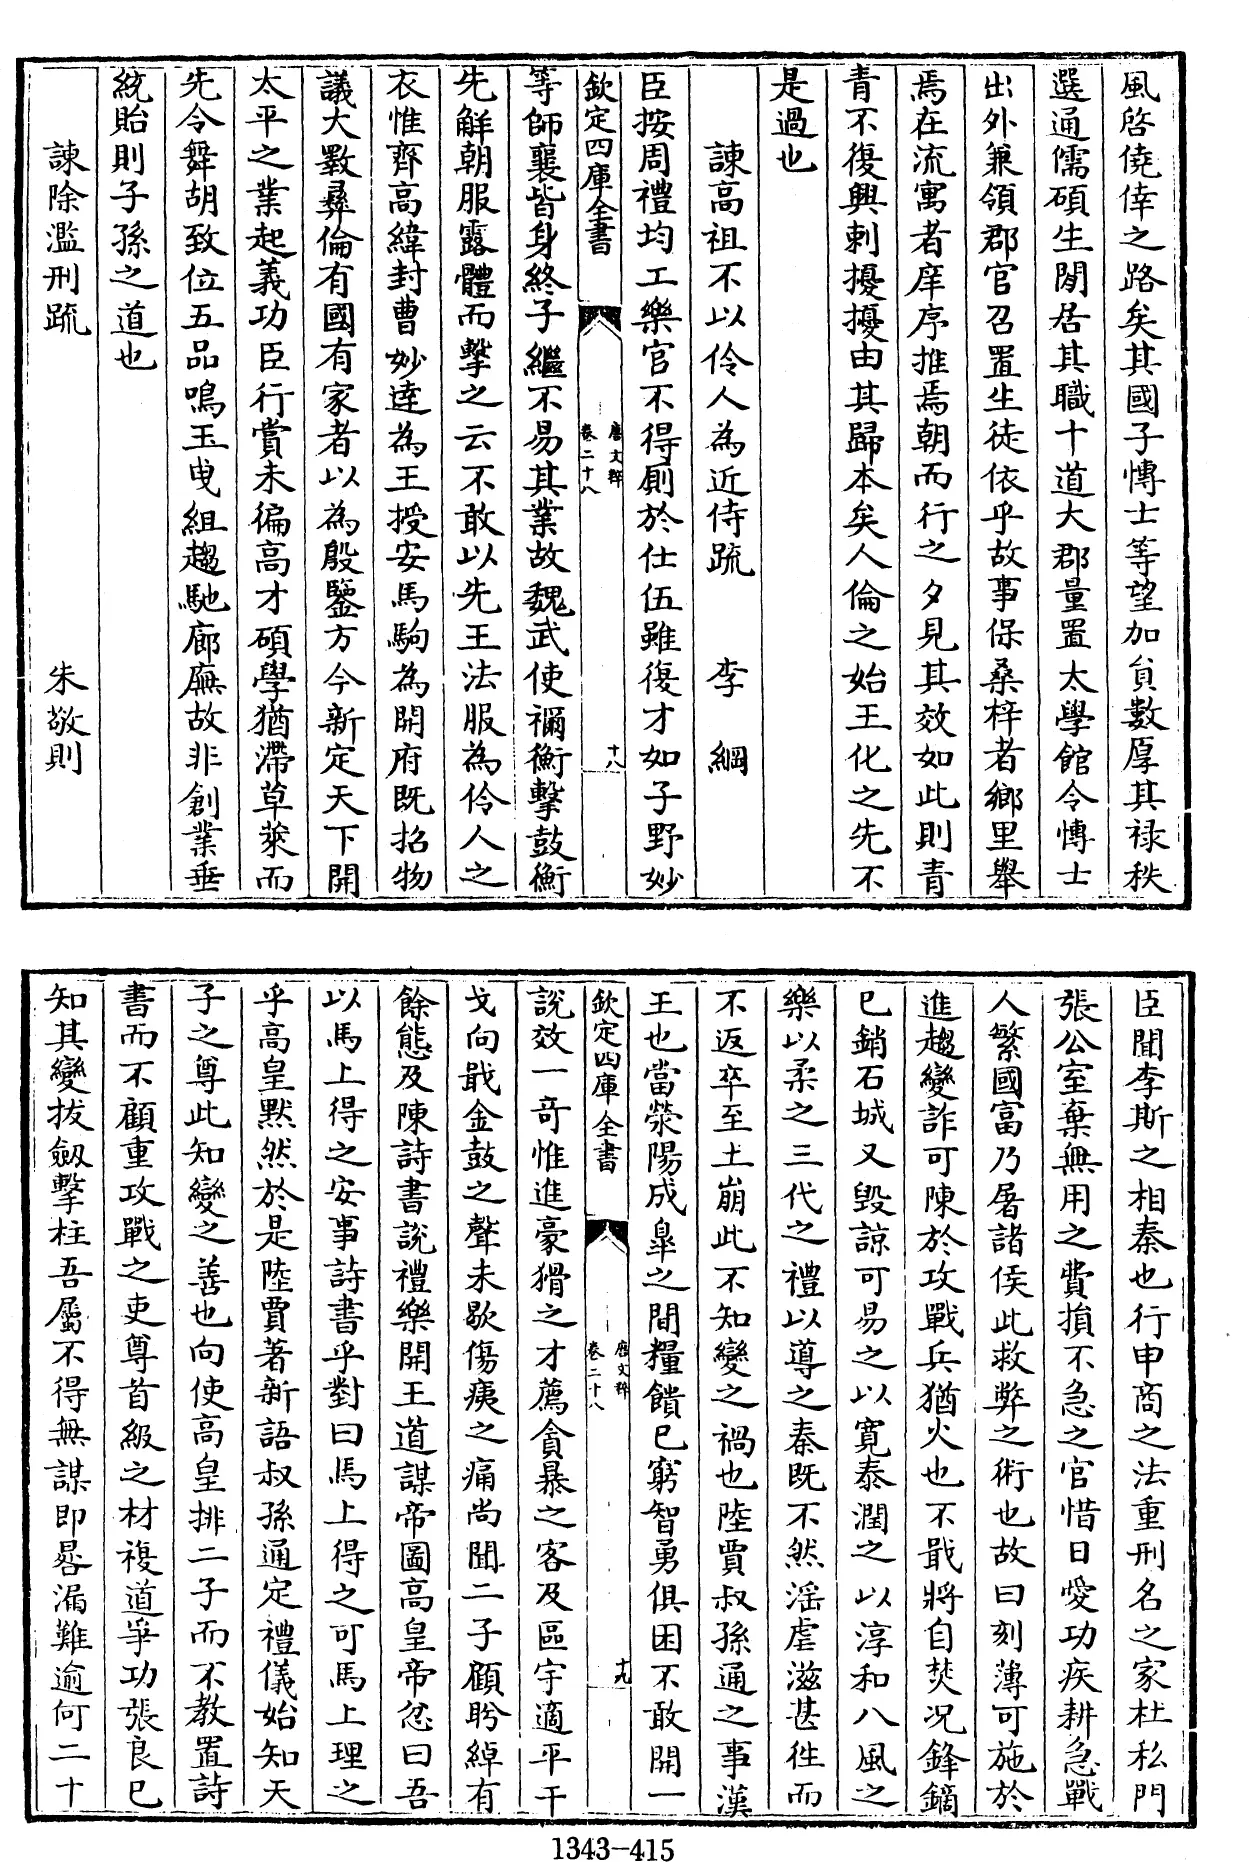 風啓僥倖之路矣其國子博士等望加員數厚其祿秩
選通儒碩生閒居其職十道大郡量置太學館令博士
出外兼領郡官召置生徒依乎故事保桑梓者鄉里舉
焉在流寓者庠序推焉朝而行之夕見其效如此則青
青不復興刺擾擾由其歸本矣人倫之始王化之先不
是過也
諫高祖不以伶人為近侍疏 李綱
臣按周禮均工樂官不得廁於仕伍雖復才如子野妙
欽定四庫全書
唐文粹
卷二十八
十八
等師襄皆身終子繼不易其業故魏武使禰衡擊鼓衡
先解朝服露體而擊之云不敢以先王法服為伶人之
衣惟齊高緯封曹妙達為王授安馬駒為開府既招物
議大斁彝倫有國有家者以為殷鑒方今新定天下開
太平之業起義功臣行賞未徧高才碩學猶滯草萊而
先令舞胡致位五品鳴玉曳組趨馳廊廡故非創業垂
統貽則子孫之道也
諫除濫刑疏 朱敬則
臣聞李斯之相秦也行申商之法重刑名之家杜私門
張公室棄無用之費損不急之官惜日愛功疾耕急戰
人繁國富乃屠諸侯此救弊之術也故曰刻薄可施於
進趨變詐可陳於攻戰兵猶火也不戢將自焚况鋒鏑
已銷石城又毀諒可易之以寬泰潤之以淳和八風之
樂以柔之三代之禮以導之秦既不然淫虐滋甚徃而
不返卒至土崩此不知變之禍也陸賈叔孫通之事漢
王也當滎陽成臯之間糧饋已窮智勇俱困不敢開一
欽定四庫全書
唐文粹
卷二十八
十九
說效一奇惟進豪猾之才薦貪暴之客及區宇適平干
戈向戢金鼓之聲未歇傷痍之痛尚聞二子顧盻綽有
餘態及陳詩書說禮樂開王道謀帝圖高皇帝忿曰吾
以馬上得之安事詩書乎對曰馬上得之可馬上理之
乎高皇默然於是陸賈著新語叔孫通定禮儀始知天
子之尊此知變之善也向使高皇排二子而不教置詩
書而不顧重攻戰之吏尊首級之材複道爭功張良已
知其變拔劔擊柱吾屬不得無謀即晷漏難逾何二十
1343-415